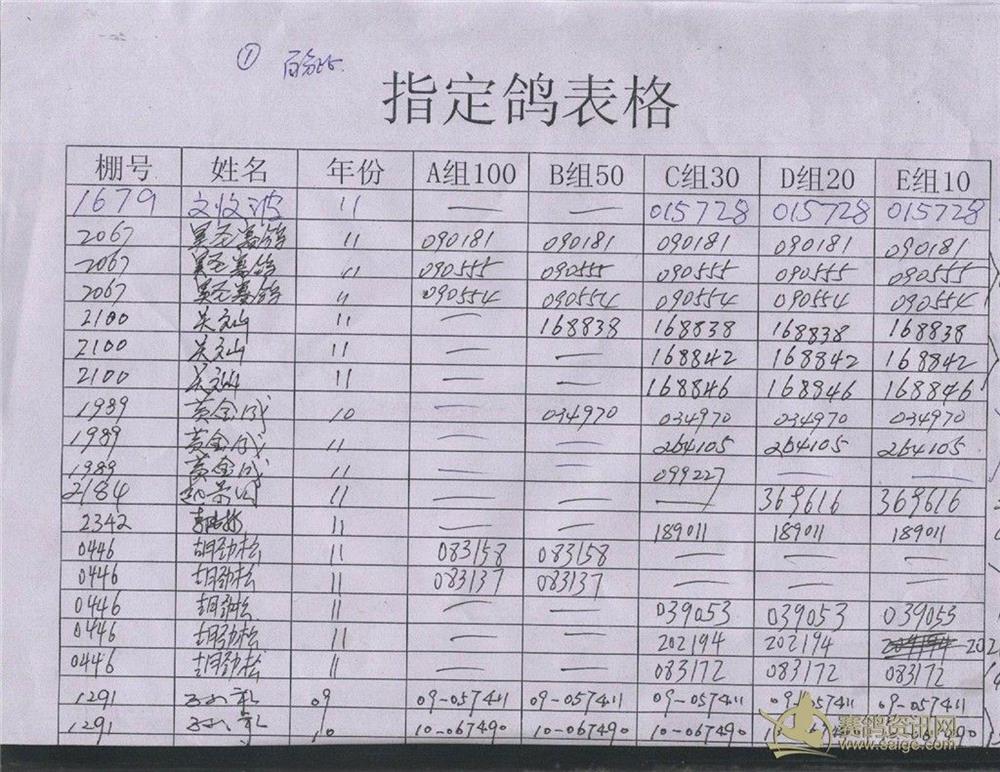 ① 百分比
指定鸽表格
棚号 姓名 年份 A组100 B组50 C组30 D组20 E组10
1679 文收波 11 — — 015728 015728 015728
2067 11 090181 090181 090181 090181 090181
2067 11 090555 090555 090555 090555 090555
2067 11 090554 090554 090554 090554 090554
2100 吴文山 11 — 168838 168838 168838 168838
2100 吴文山 11 — — 168842 168842 168842
2100 吴文山 11 — — 168846 168846 168846
1989 黄金成 10 — 034970 034970 034970 034970
1989 黄金成 11 — — 264105 264105 264105
1989 黄金成 11 — — 099227 — —
2184 11 — — — 369616 369616
2342 11 — — 189011 189011 189011
0446 胡劲松 11 083158 083158 — — —
0446 胡劲松 11 083137 083137 — — —
0446 胡劲松 11 — — 039053 039053 039053
0446 胡劲松 11 — — 202194 202194
0446 胡劲松 11 — — 083172 083172 083172
1291 09 09-057411 09-057411 09-057411 09-057411 09-057411
1291 10 10-067490 10-067490 10-067490 10-067490 10-067490
赛鸽资讯网
www.saige.com